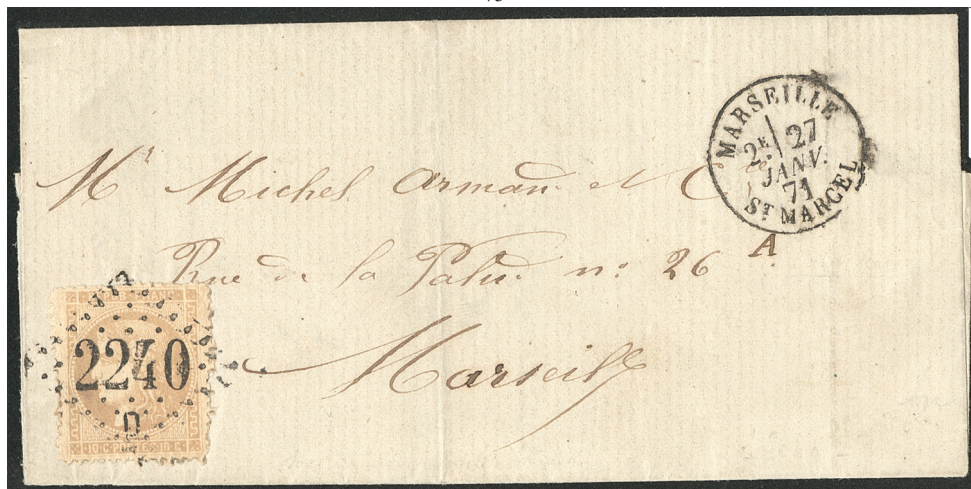 MARSEILLE
2E 27
JANV.
71
ST MARCEL
Mr Michel Arman et C
A
Rue de la Palud no: 26
Marseille
2240
D
10 C POSTE 10 C